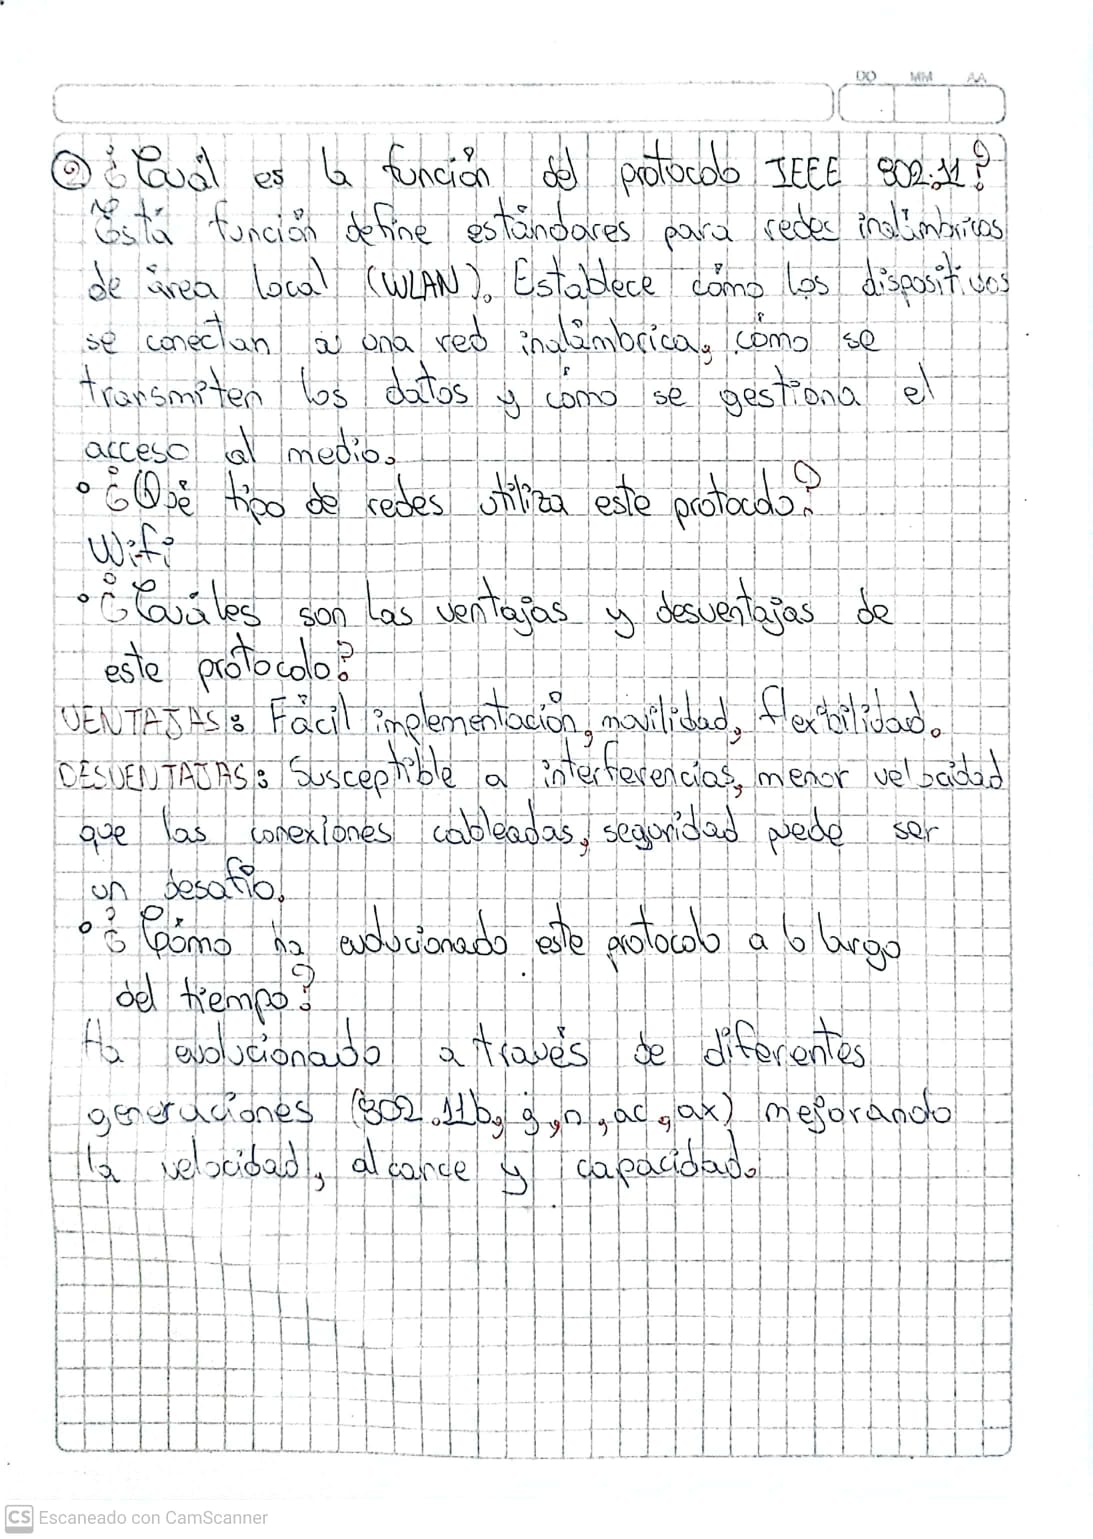 DD MM AA
② ¿Cuál es la función del protocolo IEEE 802.11?
Está función define estándares para redes inalámbricas
de área local (WLAN). Establece cómo los dispositivos
se conectan a una red inalámbrica, cómo se
transmiten los datos y cómo se gestiona el
acceso al medio.
• ¿Qué tipo de redes utiliza este protocolo?
Wifi
• ¿Cuáles son las ventajas y desventajas de
este protocolo?
VENTAJAS: Fácil implementación, movilidad, flexibilidad.
DESVENTAJAS: Susceptible a interferencias, menor velocidad
que las conexiones cableadas, seguridad puede ser
un desafío.
• ¿Cómo ha evolucionado este protocolo a lo largo
del tiempo?
Ha evolucionado a través de diferentes
generaciones (802.11b, g, n, ac, ax) mejorando
la velocidad, alcance y capacidad.
CS Escaneado con CamScanner